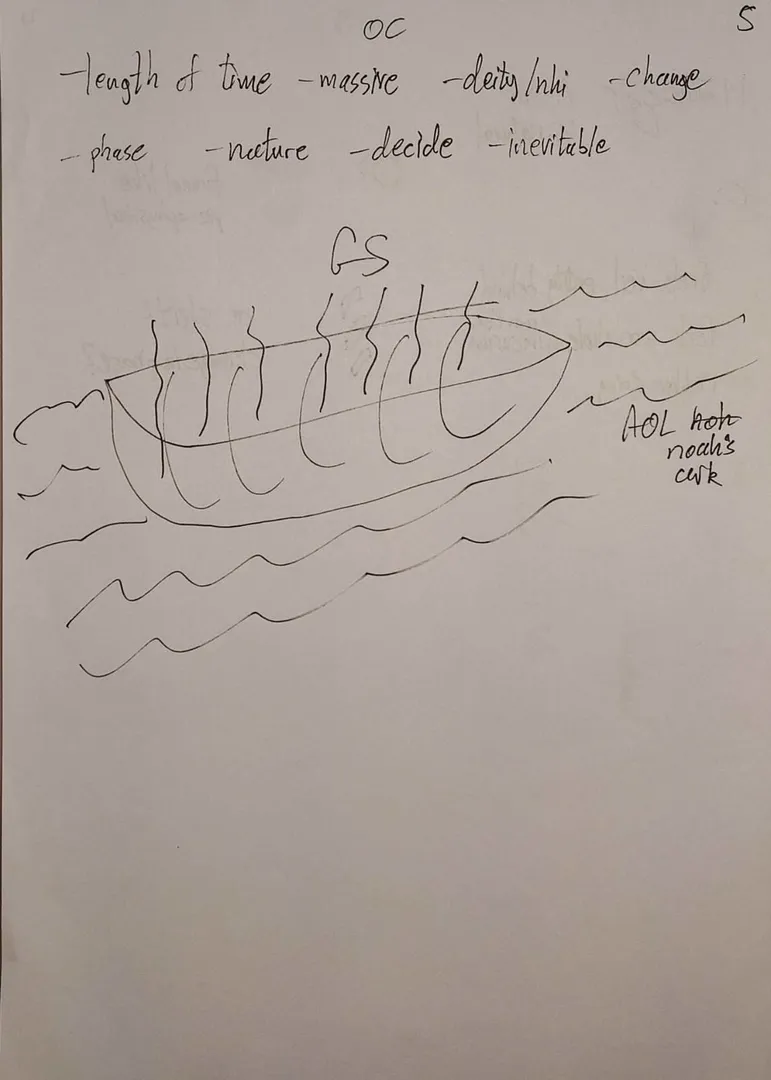 OC
5
-length of time -massive -deity/nhi -change
- phase -nature -decide -inevitable
GS
AOL noh
noah's
ark